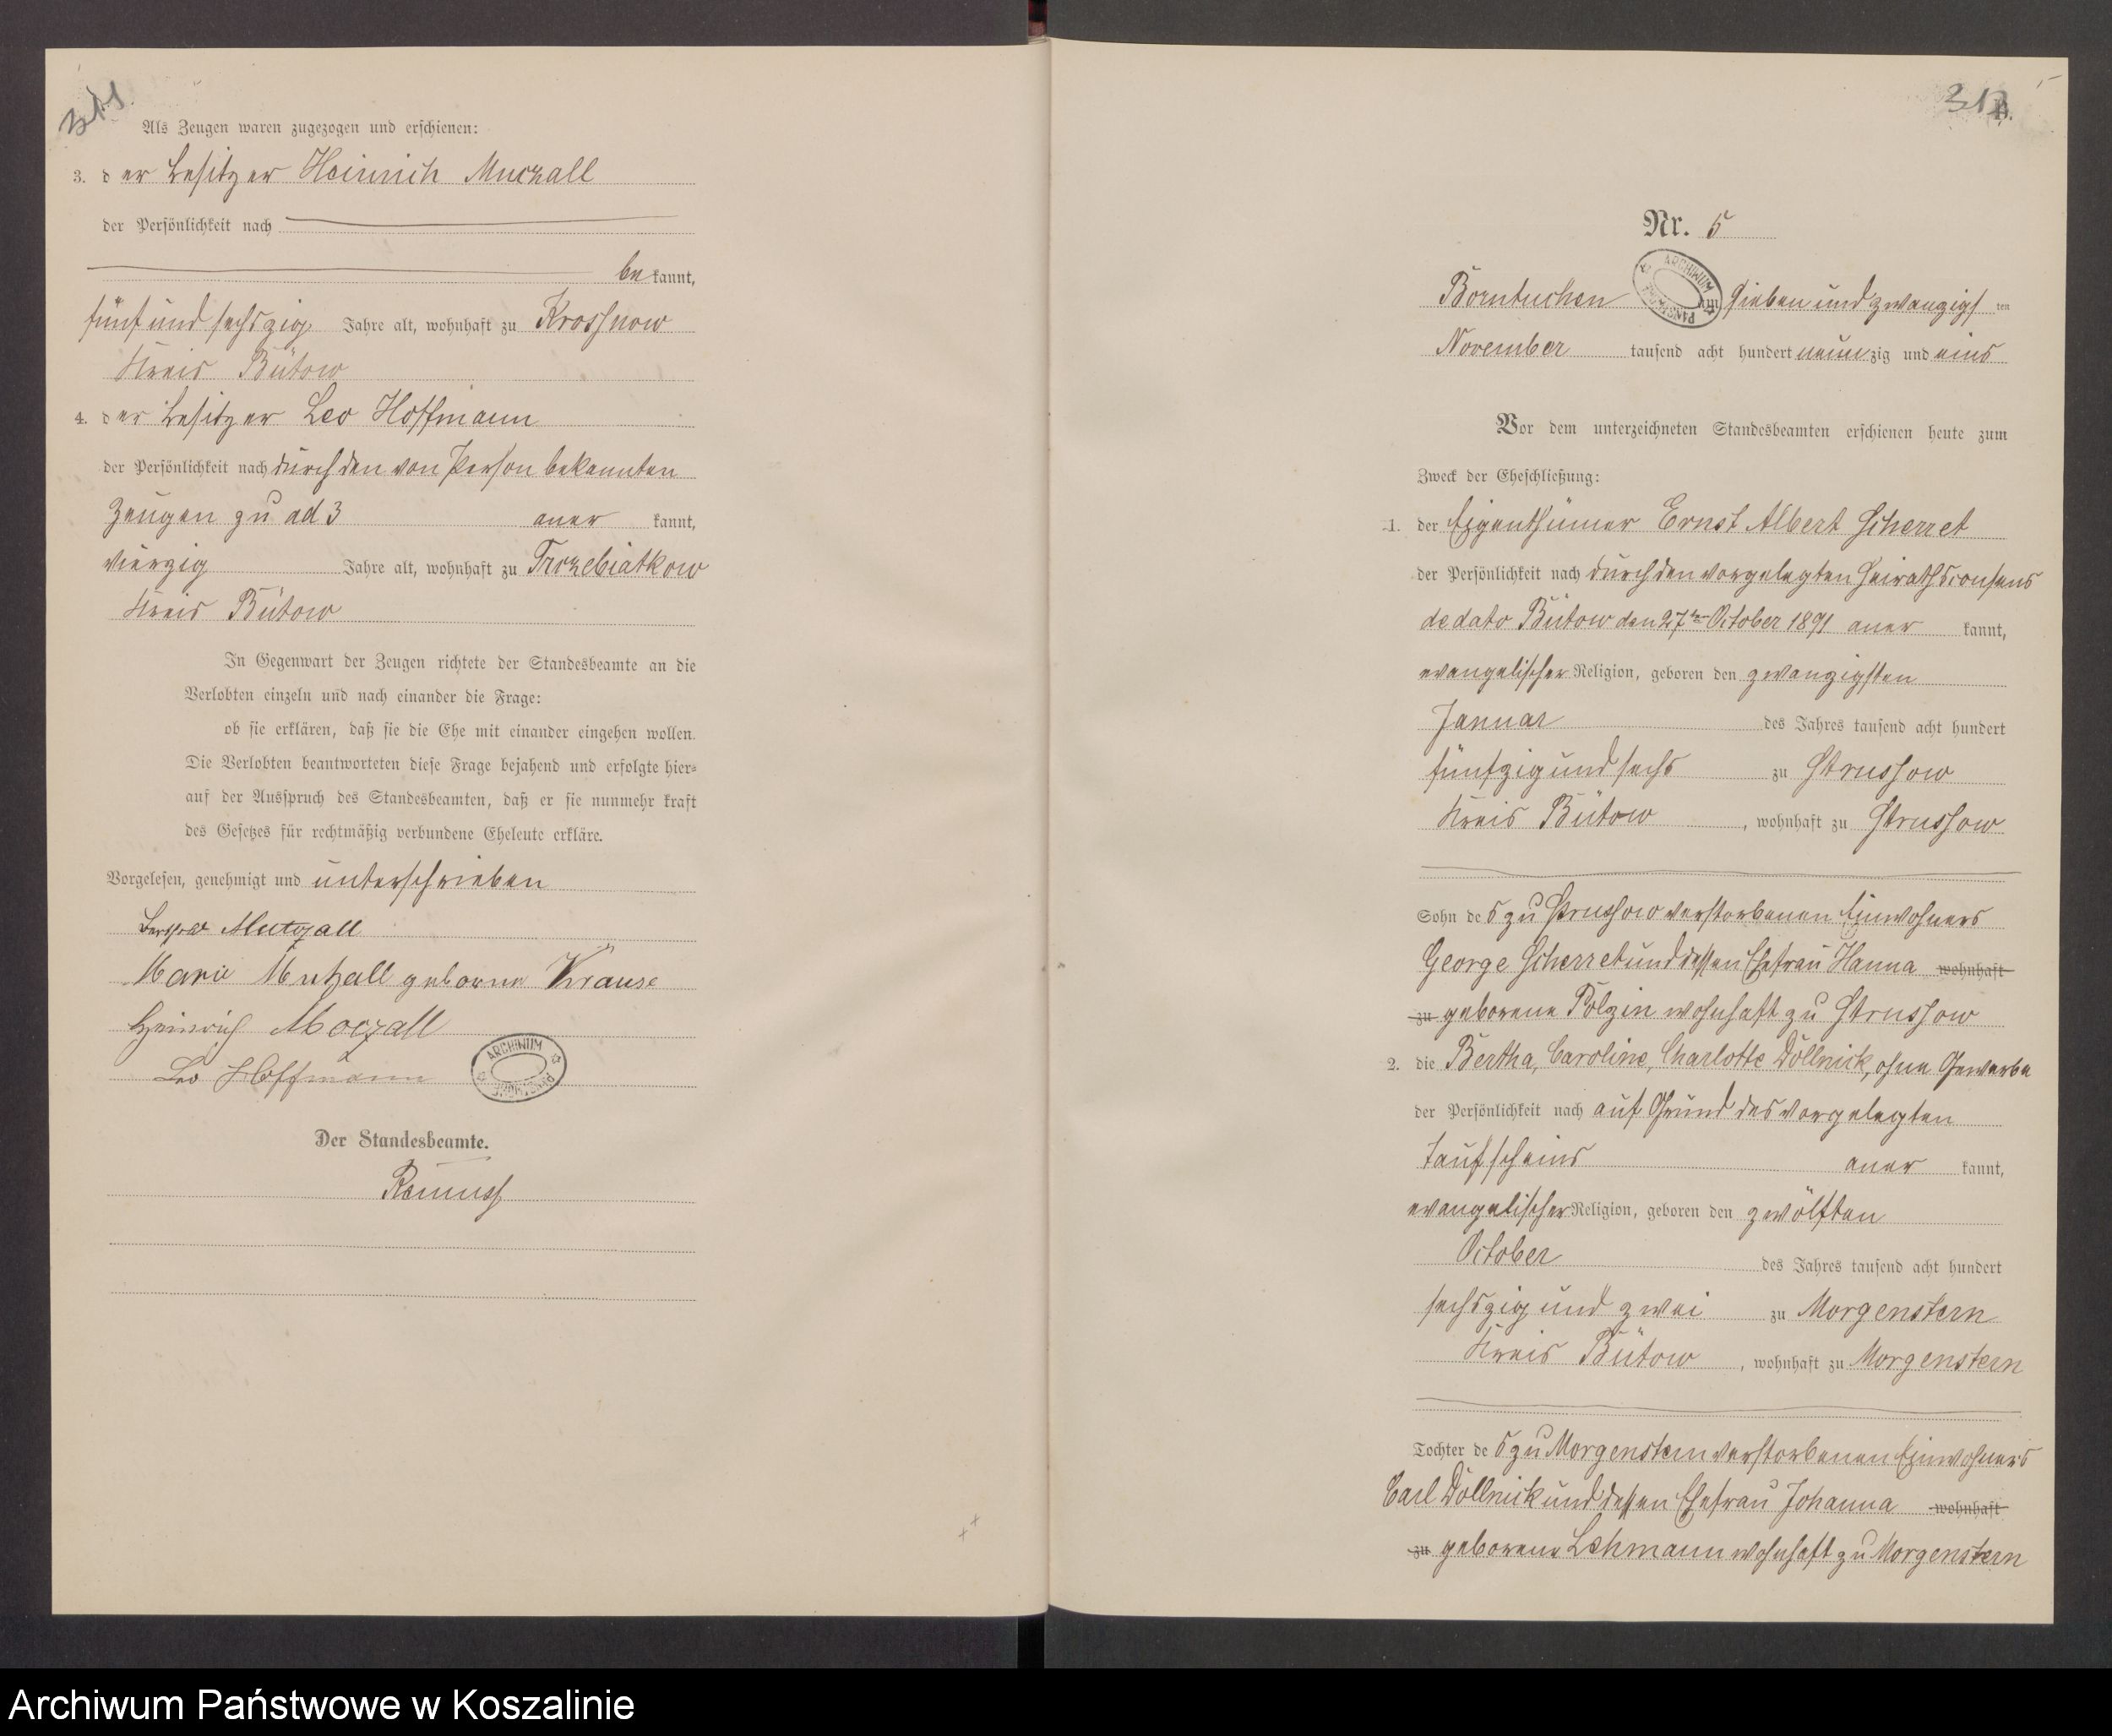 311.
Als Zeugen waren zugezogen und erschienen:
3. der Besitzer Heinrich Muczall
der Persönlichkeit nach
bekannt,
fünf und sechszig Jahre alt, wohnhaft zu Krossnow
Kreis Bütow
4. der Besitzer Leo Hoffmann
der Persönlichkeit nach durch den von Person bekannten
Zeugen zu ad 3 anerkannt,
vierzig Jahre alt, wohnhaft zu Trczebiatkow
Kreis Bütow
In Gegenwart der Zeugen richtete der Standesbeamte an die
Verlobten einzeln und nach einander die Frage:
ob sie erklären, daß sie die Ehe mit einander eingehen wollen.
Die Verlobten beantworteten diese Frage bejahend und erfolgte hier-
auf der Ausspruch des Standesbeamten, daß er sie nunmehr kraft
des Gesetzes für rechtmäßig verbundene Eheleute erkläre.
Vorgelesen, genehmigt und unterschrieben
Mutzall
Marie Mutzall geborne Krause
Heinrich Moczall
Leo Hoffmann
ARCHIWUM
Der Standesbeamte.
312
B.
Nr. 5
ARCHIWUM PAŃSTWOWE
Borntuchen am Sieben und zwanzigsten
November tausend acht hundert neunzig und eins
Vor dem unterzeichneten Standesbeamten erschienen heute zum
Zweck der Eheschließung:
1. der Eigenthümer Ernst Albert Scherret
der Persönlichkeit nach durch den vorgelegten Heirathsconsens
de dato Bütow den 27ten October 1891 anerkannt,
evangelischer Religion, geboren den zwanzigsten
Januar des Jahres tausend acht hundert
fünfzig und sechs zu Strussow
Kreis Bütow, wohnhaft zu Strussow
Sohn des zu Strussow verstorbenen Einwohners
George Scherret und dessen Ehefrau Hanna wohnhaft
zu geborene Polzin wohnhaft zu Strussow
2. die Bertha, Caroline, Charlotte Döllnick, ohne Gewerbe
der Persönlichkeit nach auf Grund des vorgelegten
Taufscheins anerkannt,
evangelischer Religion, geboren den zwölften
October des Jahres tausend acht hundert
sechszig und zwei zu Morgenstern
Kreis Bütow, wohnhaft zu Morgenstern
Tochter des zu Morgenstern verstorbenen Einwohners
Carl Döllnick und dessen Ehefrau Johanna wohnhaft
zu geborene Lehmann wohnhaft zu Morgenstern
Archiwum Państwowe w Koszalinie